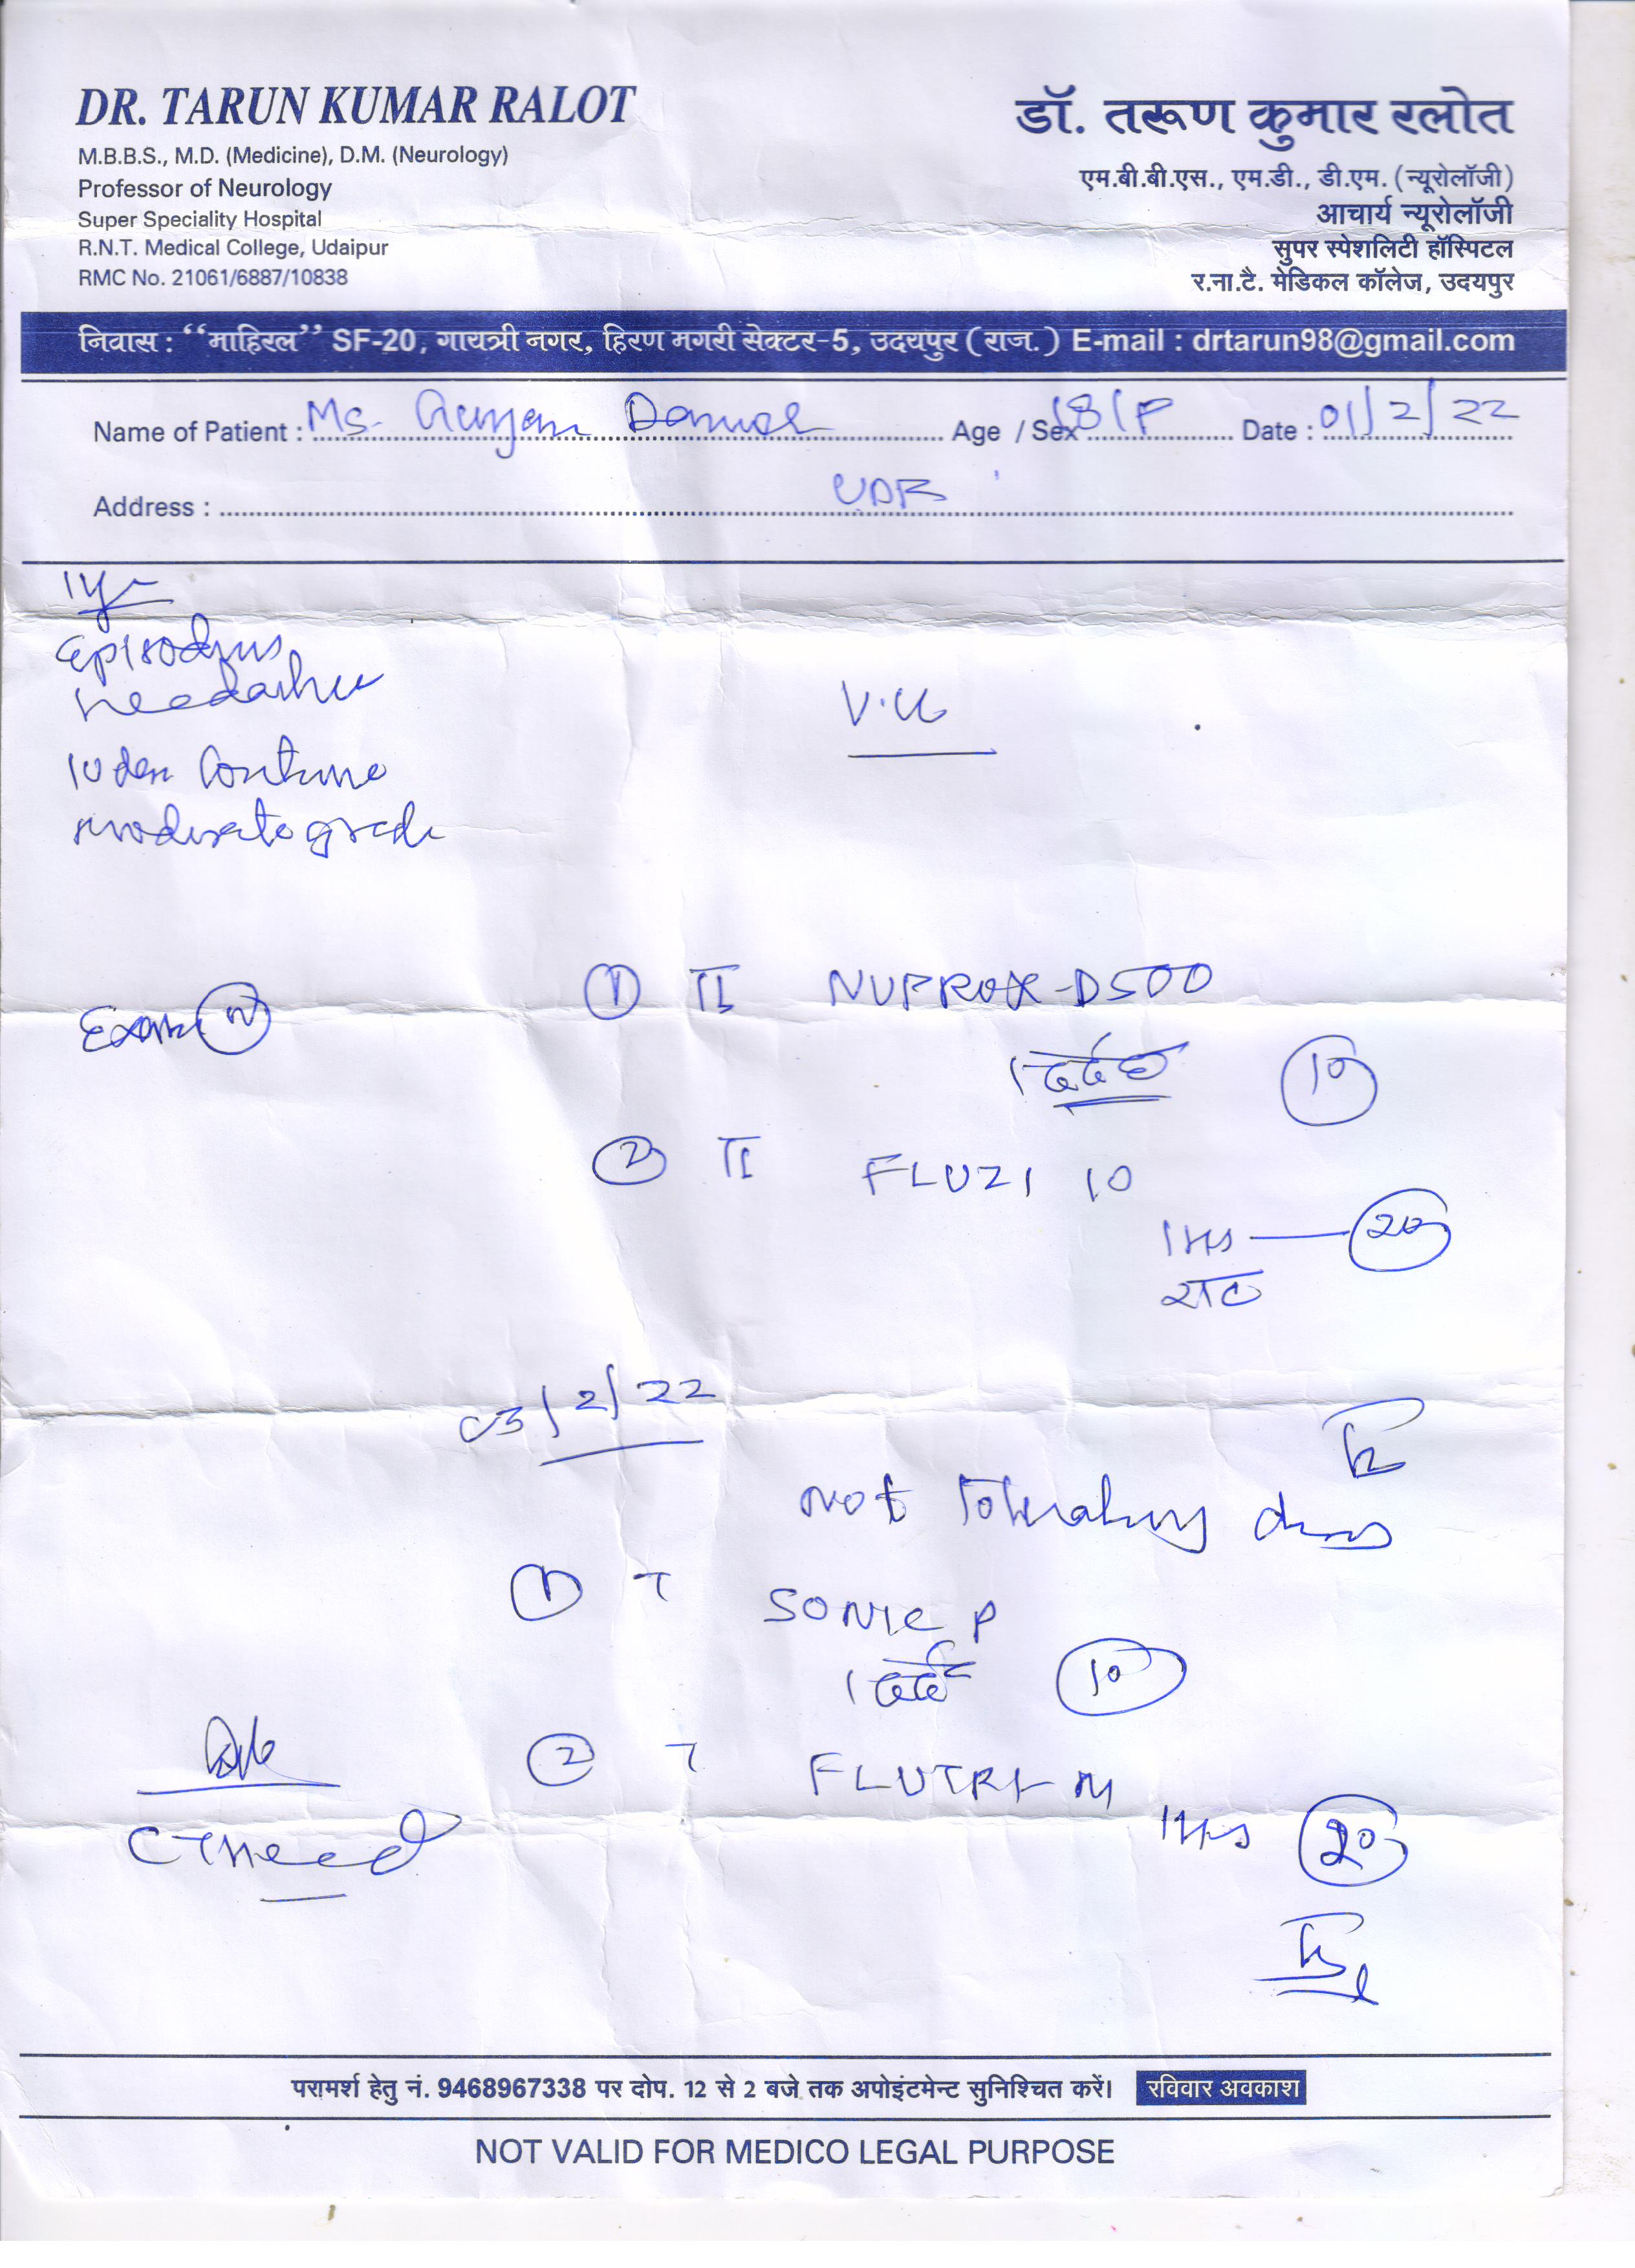 DR. TARUN KUMAR RALOT
M.B.B.S., M.D. (Medicine), D.M. (Neurology)
Professor of Neurology
Super Speciality Hospital
R.N.T. Medical College, Udaipur
RMC No. 21061/6887/10838
डॉ. तरूण कुमार रलोत
एम.बी.बी.एस., एम.डी., डी.एम. (न्यूरोलॉजी)
आचार्य न्यूरोलॉजी
सुपर स्पेशलिटी हॉस्पिटल
र.ना.टै. मेडिकल कॉलेज, उदयपुर
निवास : ‘‘माहिरल’’ SF-20, गायत्री नगर, हिरण मगरी सेक्टर-5, उदयपुर (राज.) E-mail : drtarun98@gmail.com
Name of Patient : Ms. Age / Sex 18/F Date : 01/2/22
Address : UDR
1yr
headache
moderate grade
Exam N
1 NUPROX-D500
10
2 FLUZI 10
1 HS 20
रात
03/2/22
not tolerating
1 T SONIC P
1 दर्द 10
2 T FLUTRI-M
1 HS 20
Adv
CT head
परामर्श हेतु नं. 9468967338 पर दोप. 12 से 2 बजे तक अपोइंटमेन्ट सुनिश्चित करें। रविवार अवकाश
NOT VALID FOR MEDICO LEGAL PURPOSE